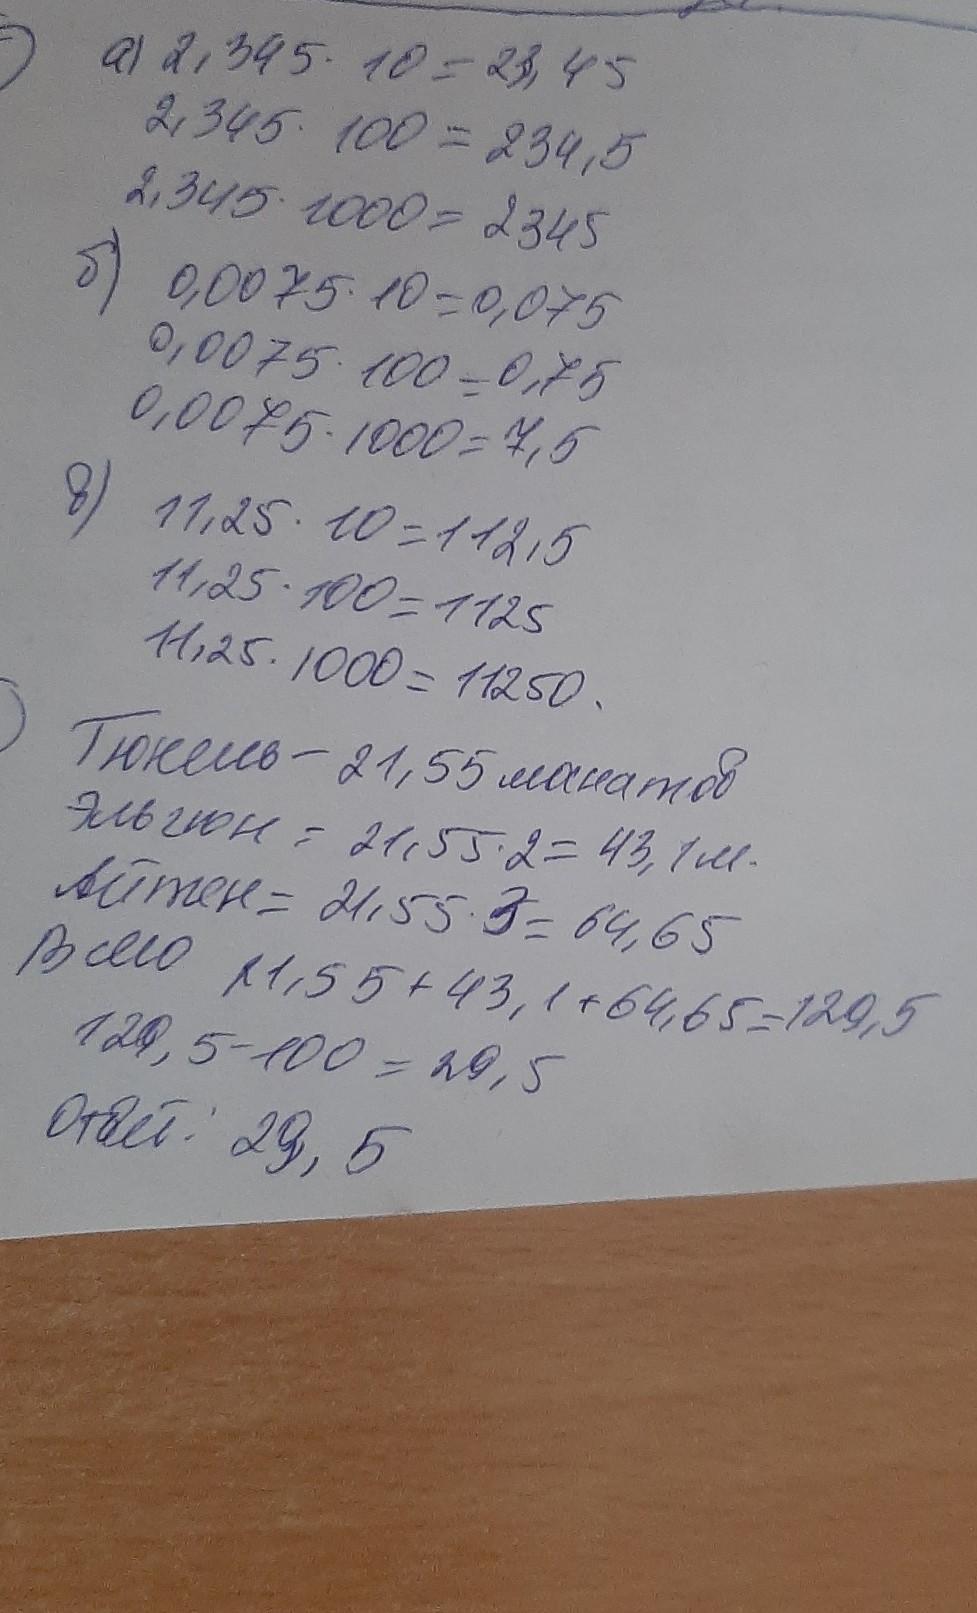 а) 2,345 · 10 = 23,45
2,345 · 100 = 234,5
2,345 · 1000 = 2345
б) 0,0075 · 10 = 0,075
0,0075 · 100 = 0,75
0,0075 · 1000 = 7,5
в) 11,25 · 10 = 112,5
11,25 · 100 = 1125
11,25 · 1000 = 11250.
Тюнель – 21,55 манатов
Эльгюн = 21,55 · 2 = 43,1 м.
Айтен = 21,55 · 3 = 64,65
Всего 21,55 + 43,1 + 64,65 = 129,5
129,5 – 100 = 29,5
Ответ: 29,5